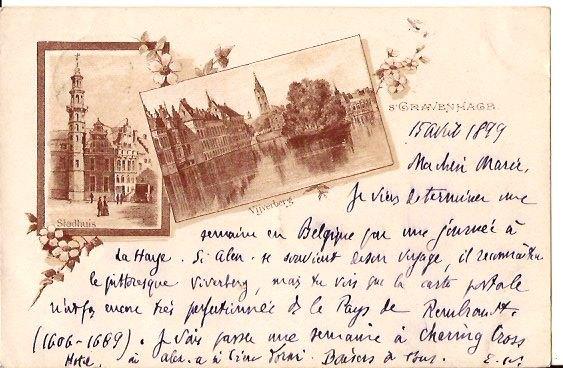 S'GRAVENHAGE
15 avril 1899
Stadhuis
Vijverberg
Ma chère Marie,
Je viens de terminer une
semaine en Belgique par une journée à
La Haye. Si Alex. se souvient de son voyage, il reconnaîtra
le pittoresque Viverberg, mais tu vois que la carte postale
n'est pas encore très perfectionnée ds le Pays de Rembrandt.
(1606-1669). Je vais passer une semaine à Charing Cross
Hotel, où Alex. a Baisers à tous.